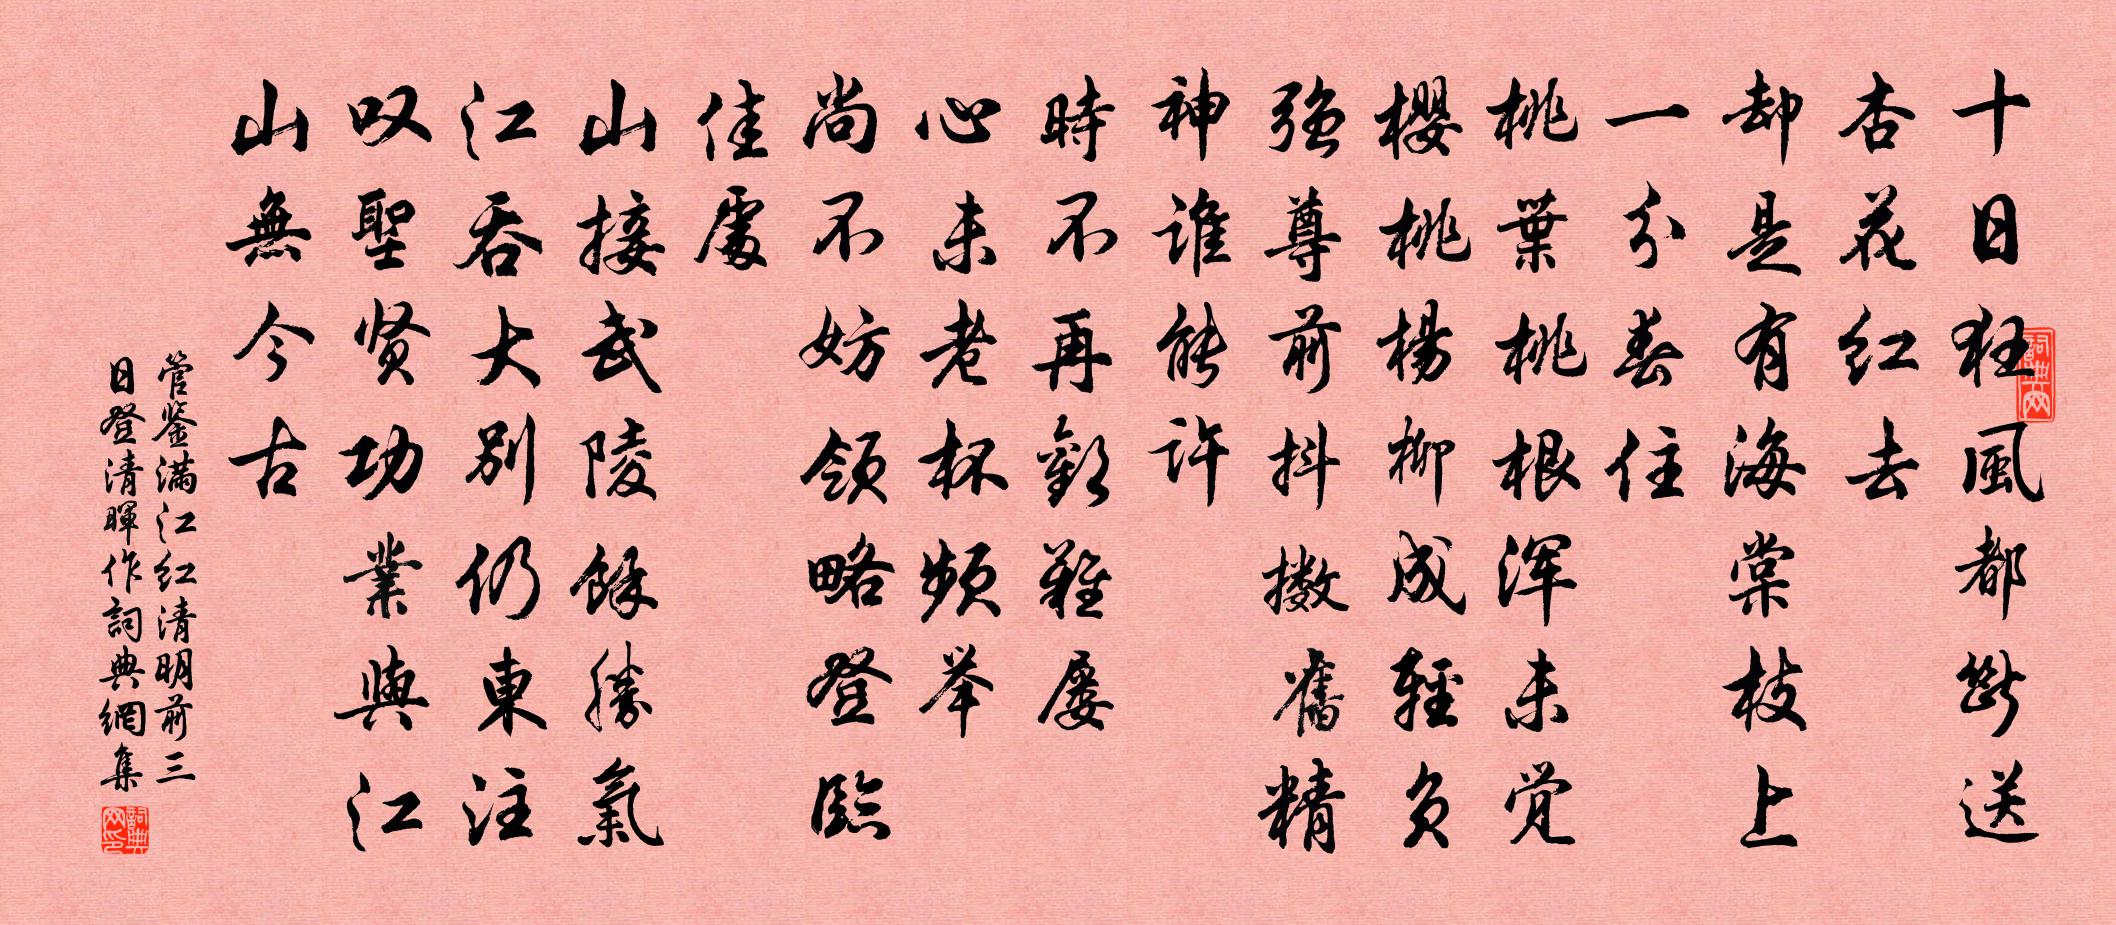 十日狂風都斷送
杏花红去
却是有海棠枝上
一分春住
桃葉桃根浑未觉
櫻桃楊柳成輕負
强尊前抖擞舊精
神谁能许
時不再歡難屡
心未老杯频举
尚不妨领略登臨
佳處
山接武陵餘勝氣
江吞大别仍東注
叹聖贤功業與江
山無今古
管鉴满江红清明前三
日登清暉作詞典網集
詞典网
詞典网印